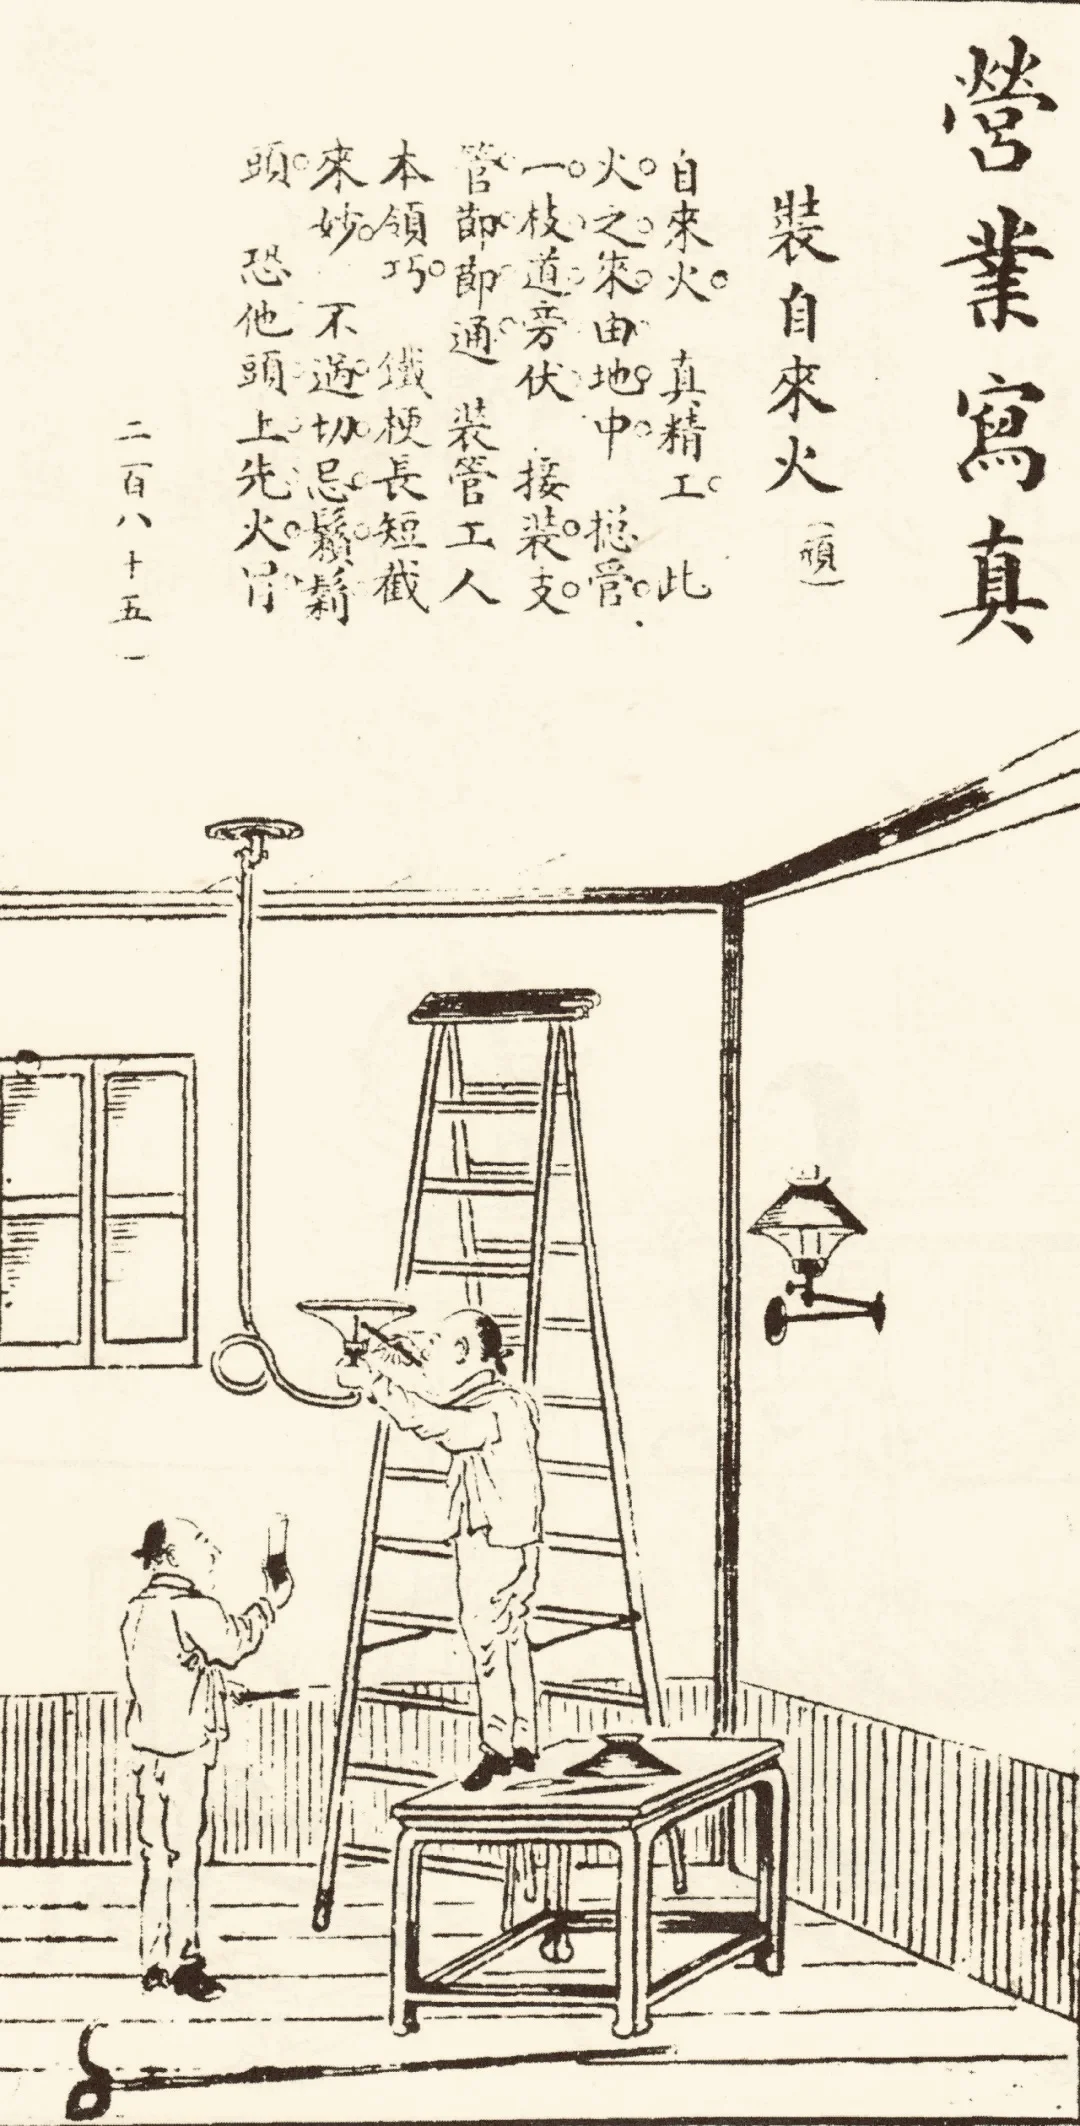 營業寫真
裝自來火
(頑)
自來火。真精工。此
火。之。來。由。地。中。摠管。
一。枝。道。旁。伏。接裝。支。
管。節。節。通。裝管工人
本領巧。鐵梗長短截
來妙。不過。切。忌。鬍鬚
頭。恐他頭上先火。冒
二百八十五